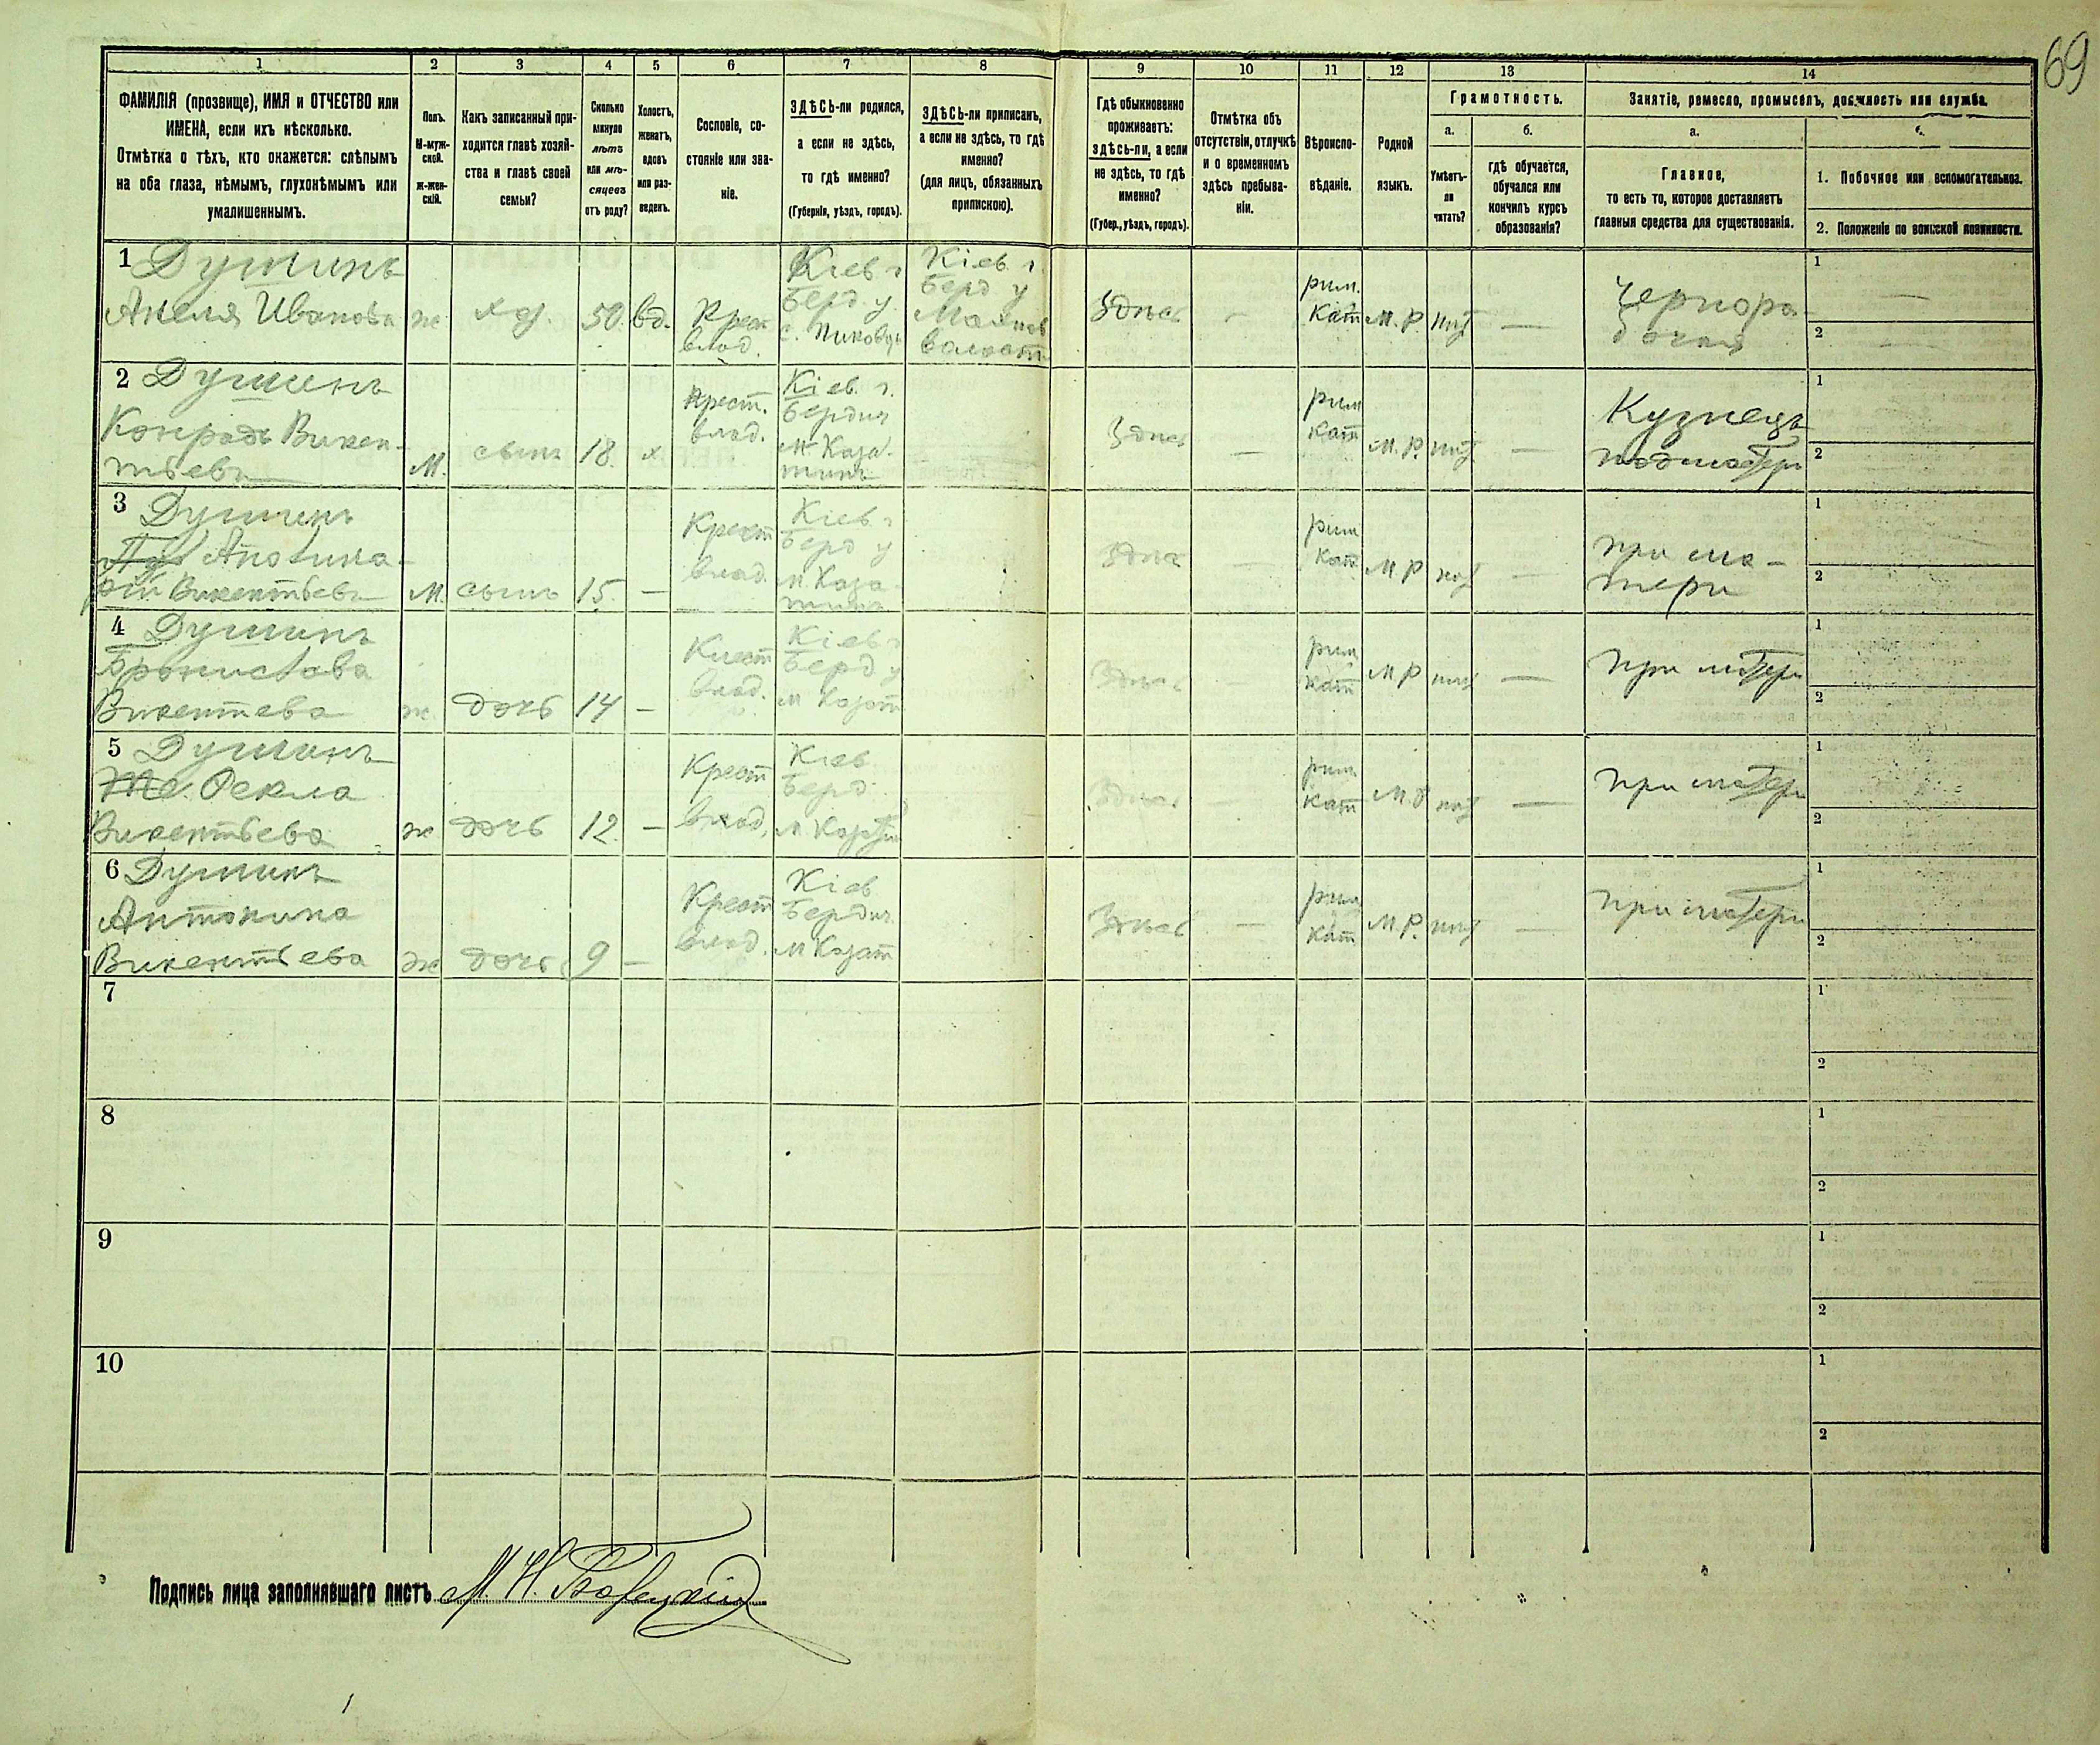 69
1 2 3 4 5 6 7 8 9 10 11 12 13 14
ФАМИЛІЯ (прозвище), ИМЯ и ОТЧЕСТВО или
ИМЕНА, если ихъ нѣсколько.
Отмѣтка о тѣхъ, кто окажется: слѣпымъ
на оба глаза, нѣмымъ, глухонѣмымъ или
умалишеннымъ.
Полъ.
М-муж-
ской.
ж-жен-
скій.
Какъ записанный при-
ходится главѣ хозяй-
ства и главѣ своей
семьи?
Сколько
минуло
лѣтъ
или мѣ-
сяцевъ
отъ роду?
Холостъ,
женатъ,
вдовъ
или раз-
веденъ.
Сословіе, со-
стояніе или зва-
ніе.
ЗДѢСЬ-ли родился,
а если не здѣсь,
то гдѣ именно?
(Губернія, уѣздъ, городъ).
ЗДѢСЬ-ли приписанъ,
а если не здѣсь, то гдѣ
именно?
(для лицъ, обязанныхъ
припискою).
Гдѣ обыкновенно
проживаетъ:
здѣсь-ли, а если
не здѣсь, то гдѣ
именно?
(Губер., уѣздъ, городъ).
Отмѣтка объ
отсутствіи, отлучкѣ
и о временномъ
здѣсь пребыва-
ніи.
Вѣроиспо-
вѣданіе.
Родной
языкъ.
Грамотность.
а.
Умѣетъ-
ли
читать?
б.
гдѣ обучается,
обучался или
кончилъ курсъ
образованія?
Занятіе, ремесло, промыселъ, должность или служба.
а.
Главное,
то есть то, которое доставляетъ
главныя средства для существованія.
1. Побочное или вспомогательное.
2. Положеніе по воинской повинности.
1 Душинъ
Анеля Иванова
ж
хоз.
50.
вд.
Крест
влад.
Кіев г
Берд. у
Кіев. г.
Берд у
Махнов
волости
Здѣсь
-
рим.
Кат
М. Р.
нѣт
—
Чернора
бочая
1
—
2
—
2 Душинъ
Конрадъ Викен-
тьевъ
М.
сынъ
18.
х
Крест.
влад.
Кіев. г.
Бердич
м Каза-
тинъ
Здѣсь
—
рим
кат
М. Р.
нѣт
—
Кузнецъ
подмастерь
1
2
3 Душинъ
Аполина-
рій Викентьевъ
М.
сынъ
15.
—
Крест
влад.
Кіев. г
Берд у
м Каза
тинъ
Здѣсь
—
рим
Кат
М Р
нѣт
—
при ма-
тери
1
2
4 Душинъ
Бронислава
Викентева
ж
дочь
14
—
Крест
влад.
Кіев г
Берд у
м Козат
Здѣсь
—
рим
кат
М Р
нѣт
—
при матери
1
2
5 Душинъ
Ѳекла
Викентьева
ж
дочь
12.
—
Крест
влад.
Кіев
Берд.
м Козатин
Здѣсь
—
рим
кат
М. Р
нѣт
—
при матери
1
2
6 Душинъ
Антонина
Викентьева
ж
дочь
9
—
Крест
влад.
Кіев
Бердич.
м Козат
Здѣсь
—
рим
кат
М. Р.
нѣт
—
при матери
1
2
7
1
2
8
1
2
9
1
2
10
1
2
Подпись лица заполнявшаго листъ